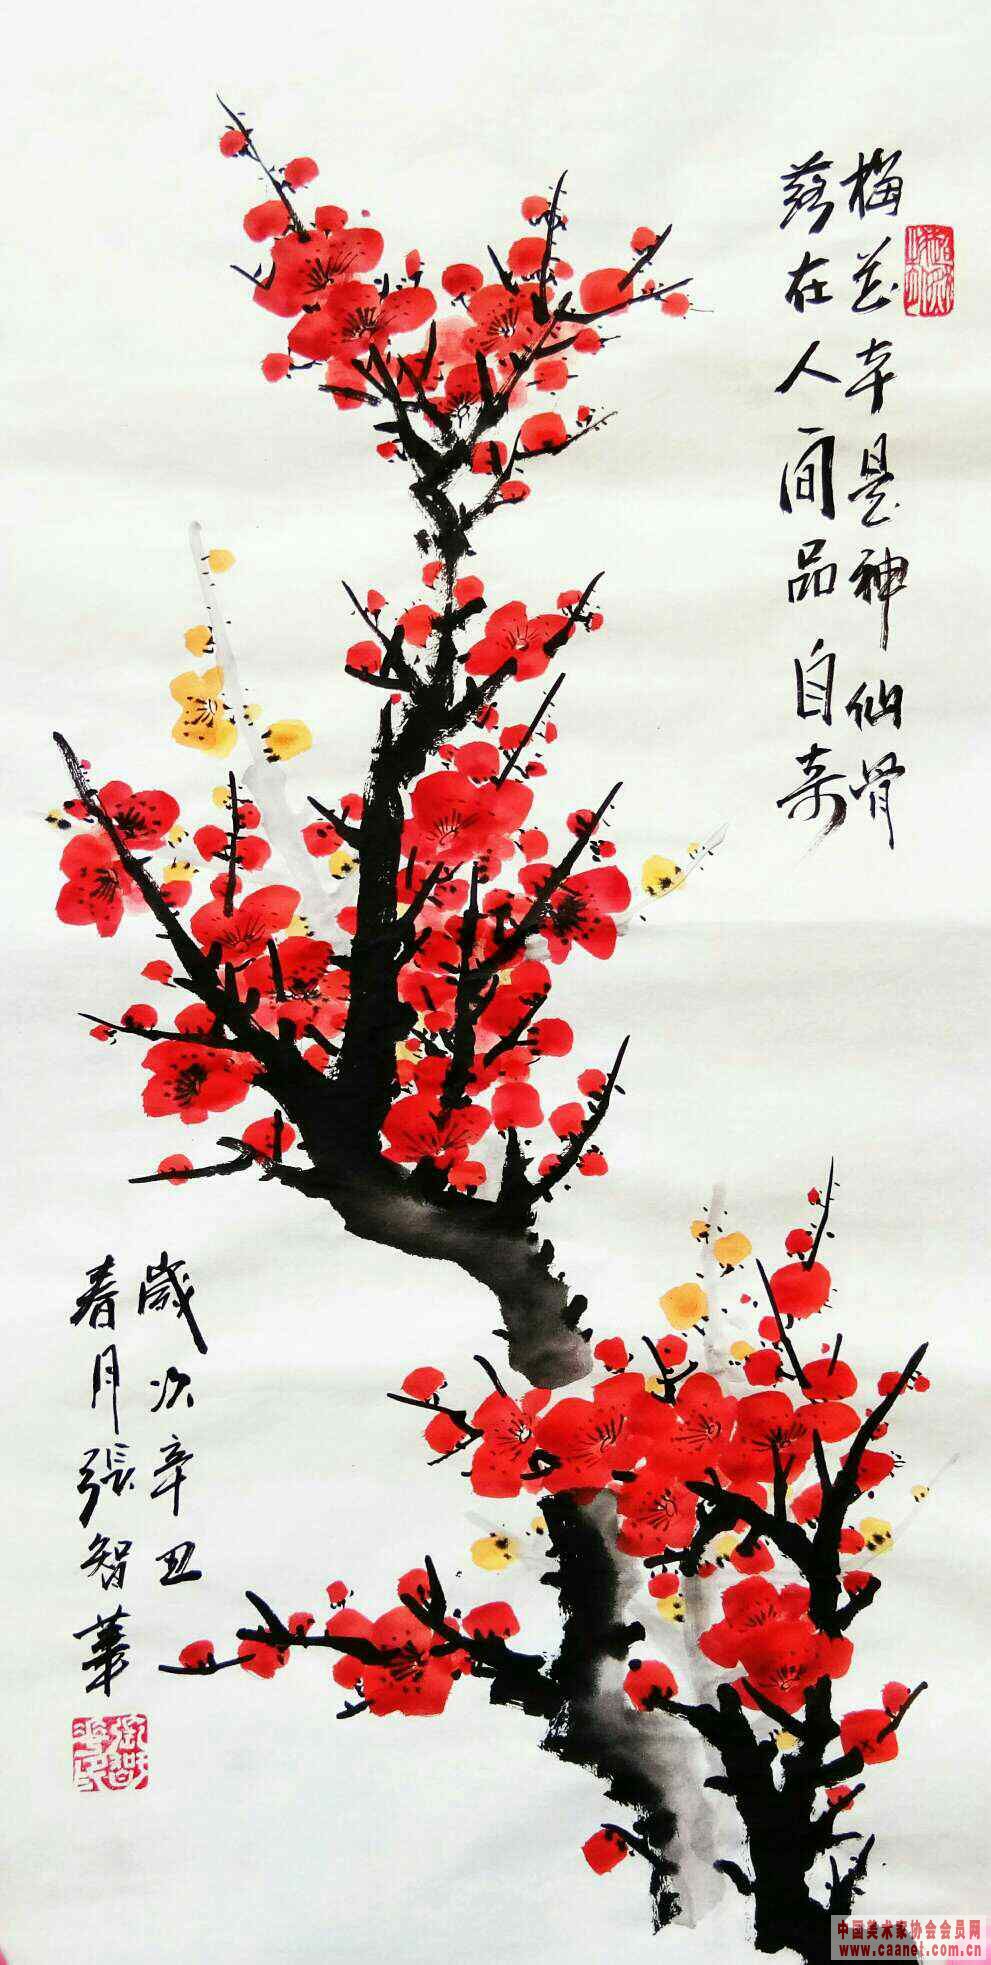 梅花本是神仙骨
落在人间品自奇
歲次辛丑
春月張智華
中国美术家协会会员网
www.caanet.com.cn